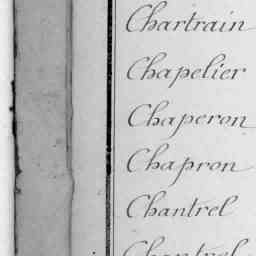 Chartrain
Chapelier
Chaperon
Chapron
Chantrel
Chantrel